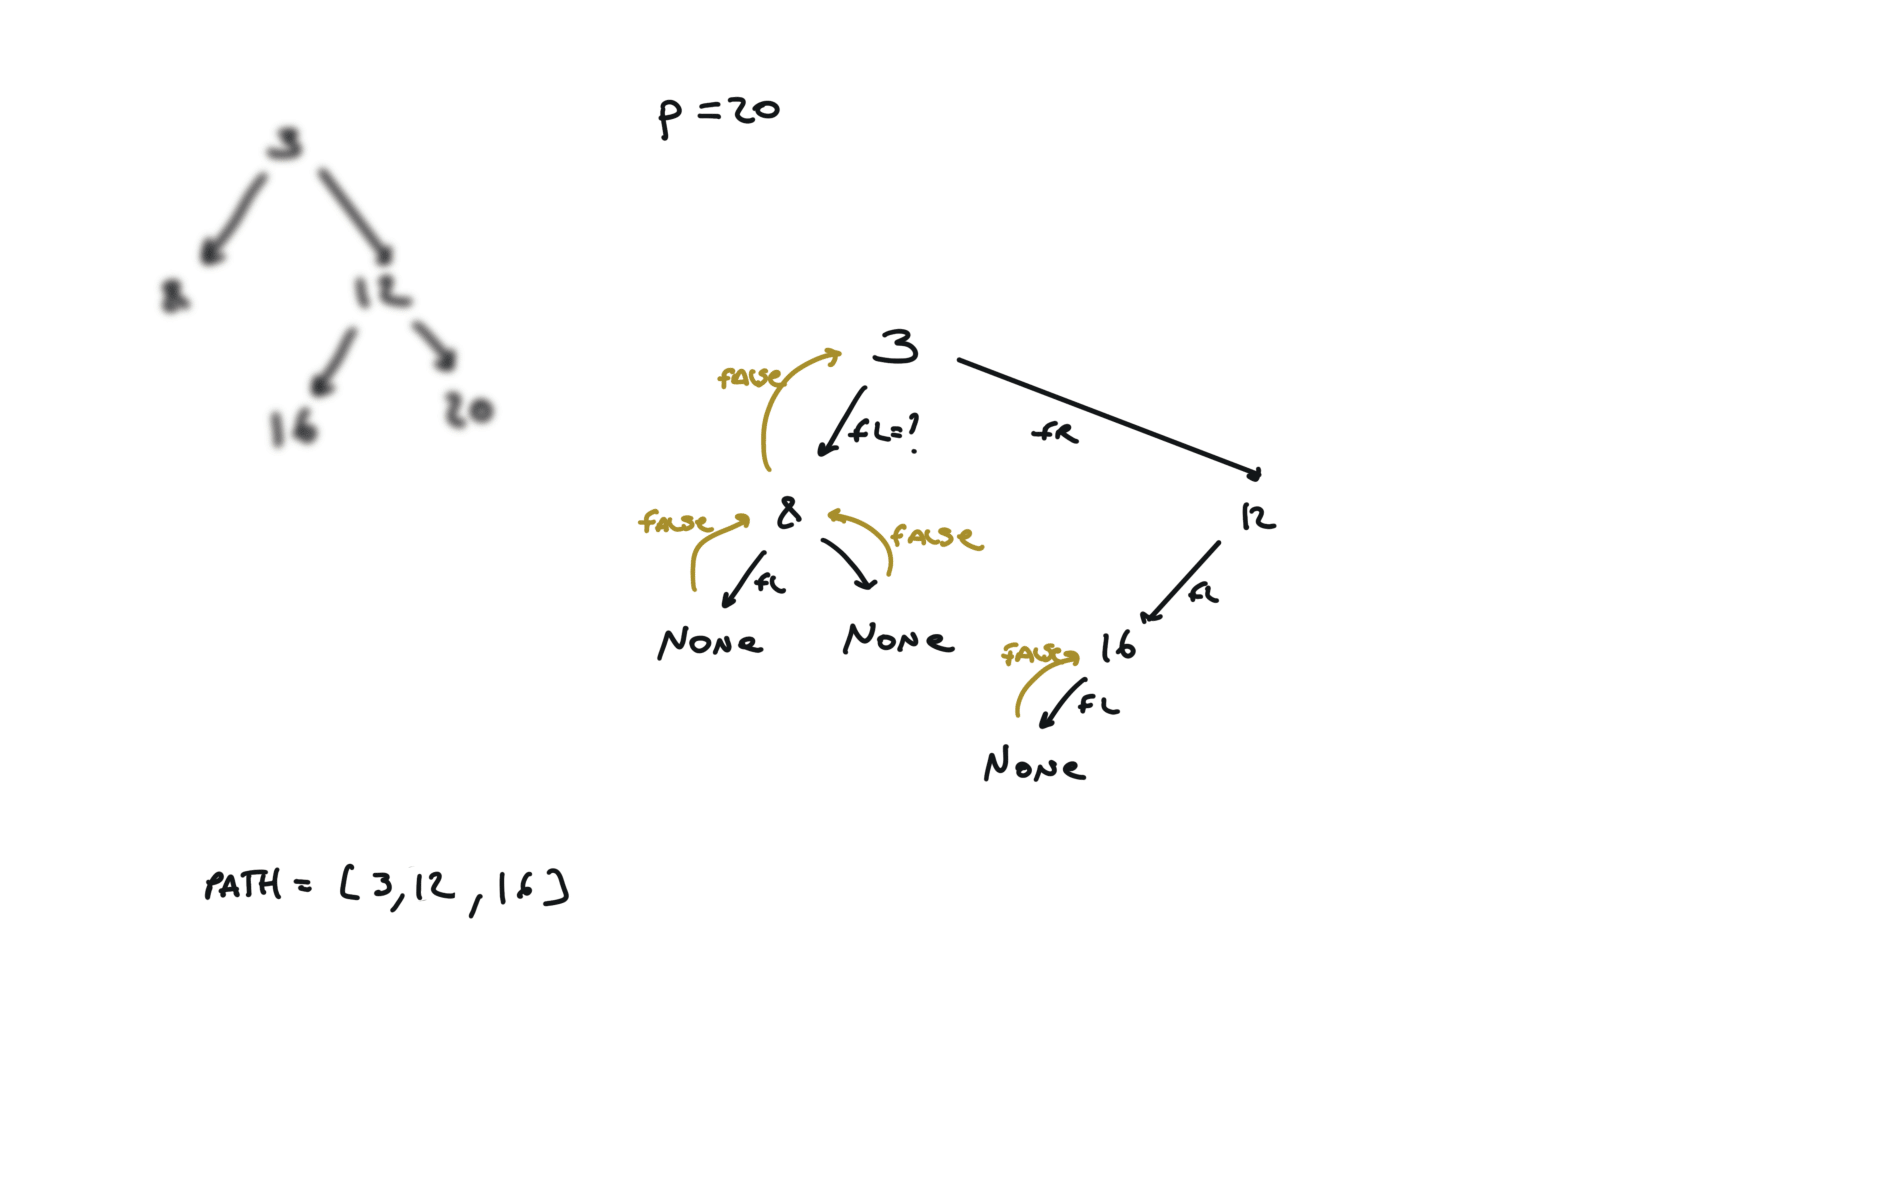 p = 20
3
8
12
16
20
3
false
fL=?
fR
8
12
false
false
fL
fL
None
None
16
false
fL
None
PATH = [3, 12, 16]